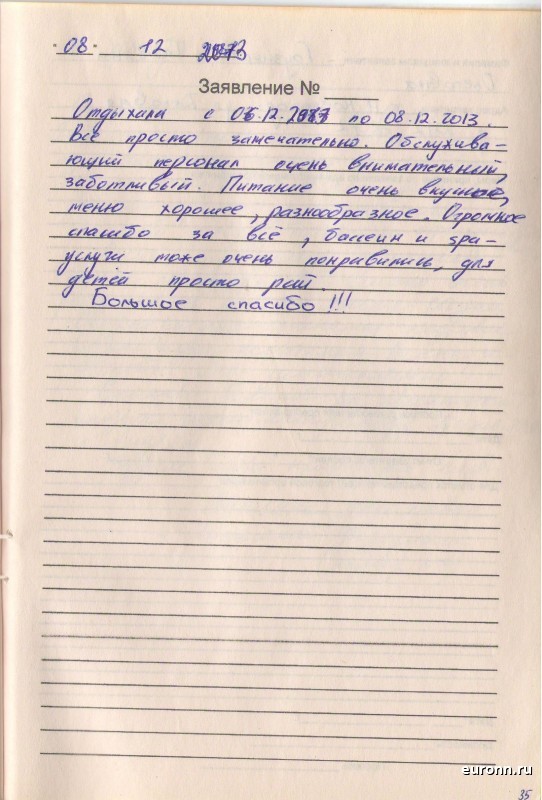 08 12 2013
Заявление №
Отдыхали с 06.12.2013 по 08.12.2013.
Всё просто замечательно. Обслужива-
ющий персонал очень внимательный,
заботливый. Питание очень вкусное,
меню хорошее, разнообразное. Огромное
спасибо за всё, бассеин и spa-
услуги тоже очень понравились, для
детей просто рай.
Большое спасибо!!!
35
euronn.ru